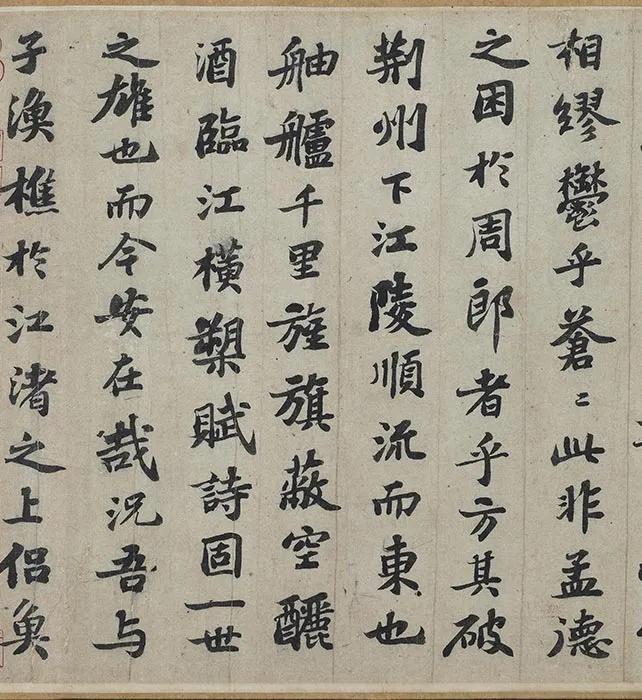 相繆鬱乎蒼〻此非孟德
之困於周郎者乎方其破
荆州下江陵順流而東也
舳艫千里旌旗蔽空釃
酒臨江橫槊賦詩固一世
之雄也而今安在哉況吾與
子漁樵於江渚之上侶魚